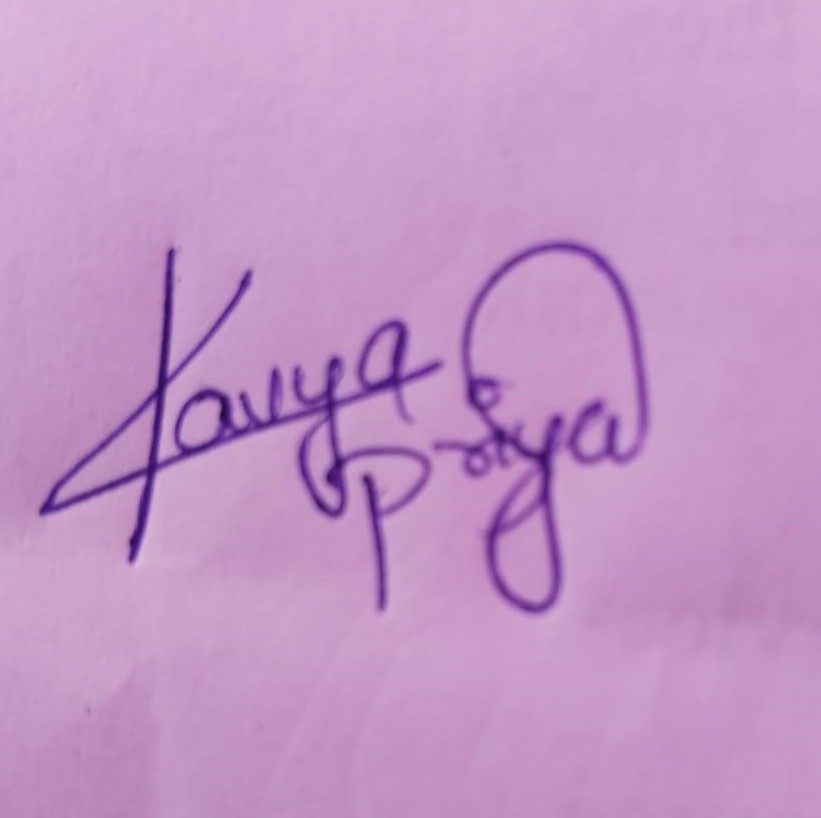 Kavya
Priya